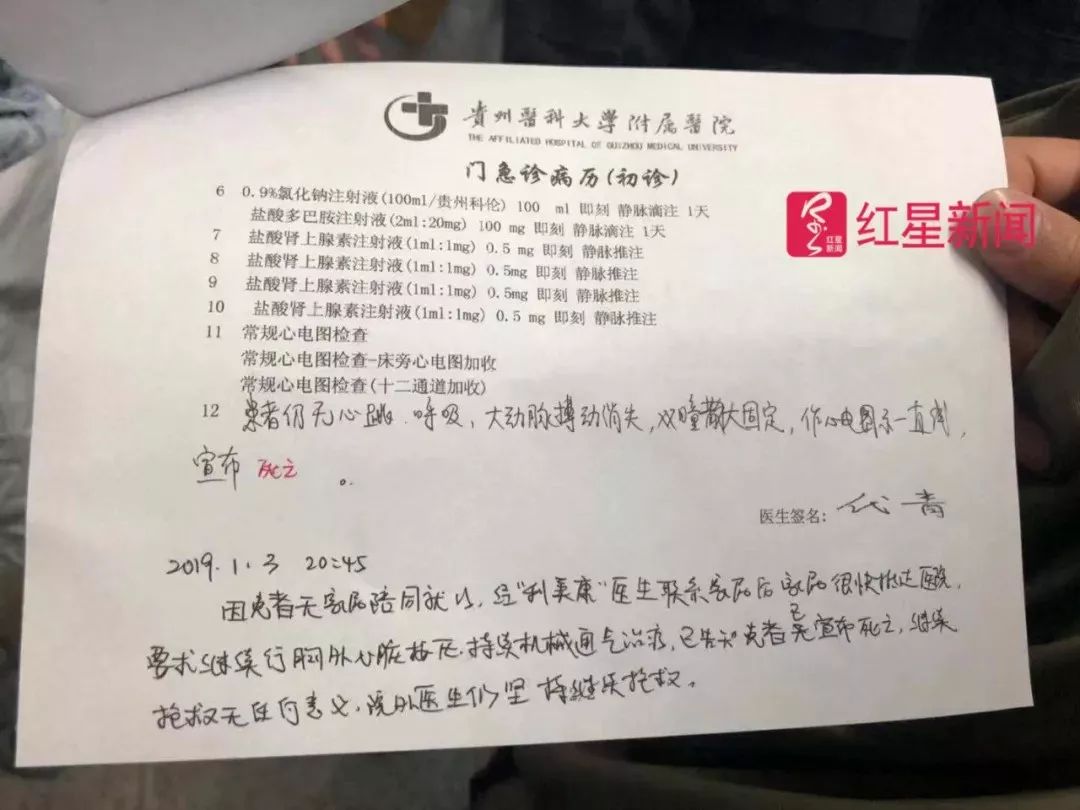 貴州醫科大學附属醫院
THE AFFILIATED HOSPITAL OF GUIZHOU MEDICAL UNIVERSITY
门急诊病历(初诊)
红星新闻
红星
新闻
6 0.9%氯化钠注射液(100ml/贵州科伦) 100 ml 即刻 静脉滴注 1天
盐酸多巴胺注射液(2ml:20mg) 100 mg 即刻 静脉滴注 1天
7 盐酸肾上腺素注射液(1ml:1mg) 0.5 mg 即刻 静脉推注
8 盐酸肾上腺素注射液(1ml:1mg) 0.5mg 即刻 静脉推注
9 盐酸肾上腺素注射液(1ml:1mg) 0.5mg 即刻 静脉推注
10 盐酸肾上腺素注射液(1ml:1mg) 0.5 mg 即刻 静脉推注
11 常规心电图检查
常规心电图检查-床旁心电图加收
常规心电图检查(十二通道加收)
12 患者仍无心跳、呼吸，大动脉搏动消失，双瞳散大固定，作心电图示一直线，
宣布 死亡 。
医生签名: 代青
2019.1.3 20:45
因患者无家属陪同就诊，经"利美康"医生联系家属后家属很快抵达医院，
要求继续行胸外心脏按压、持续机械通气治疗，已告知患者已宣布死亡，继续
抢救无任何意义，院外医生仍坚持继续抢救。